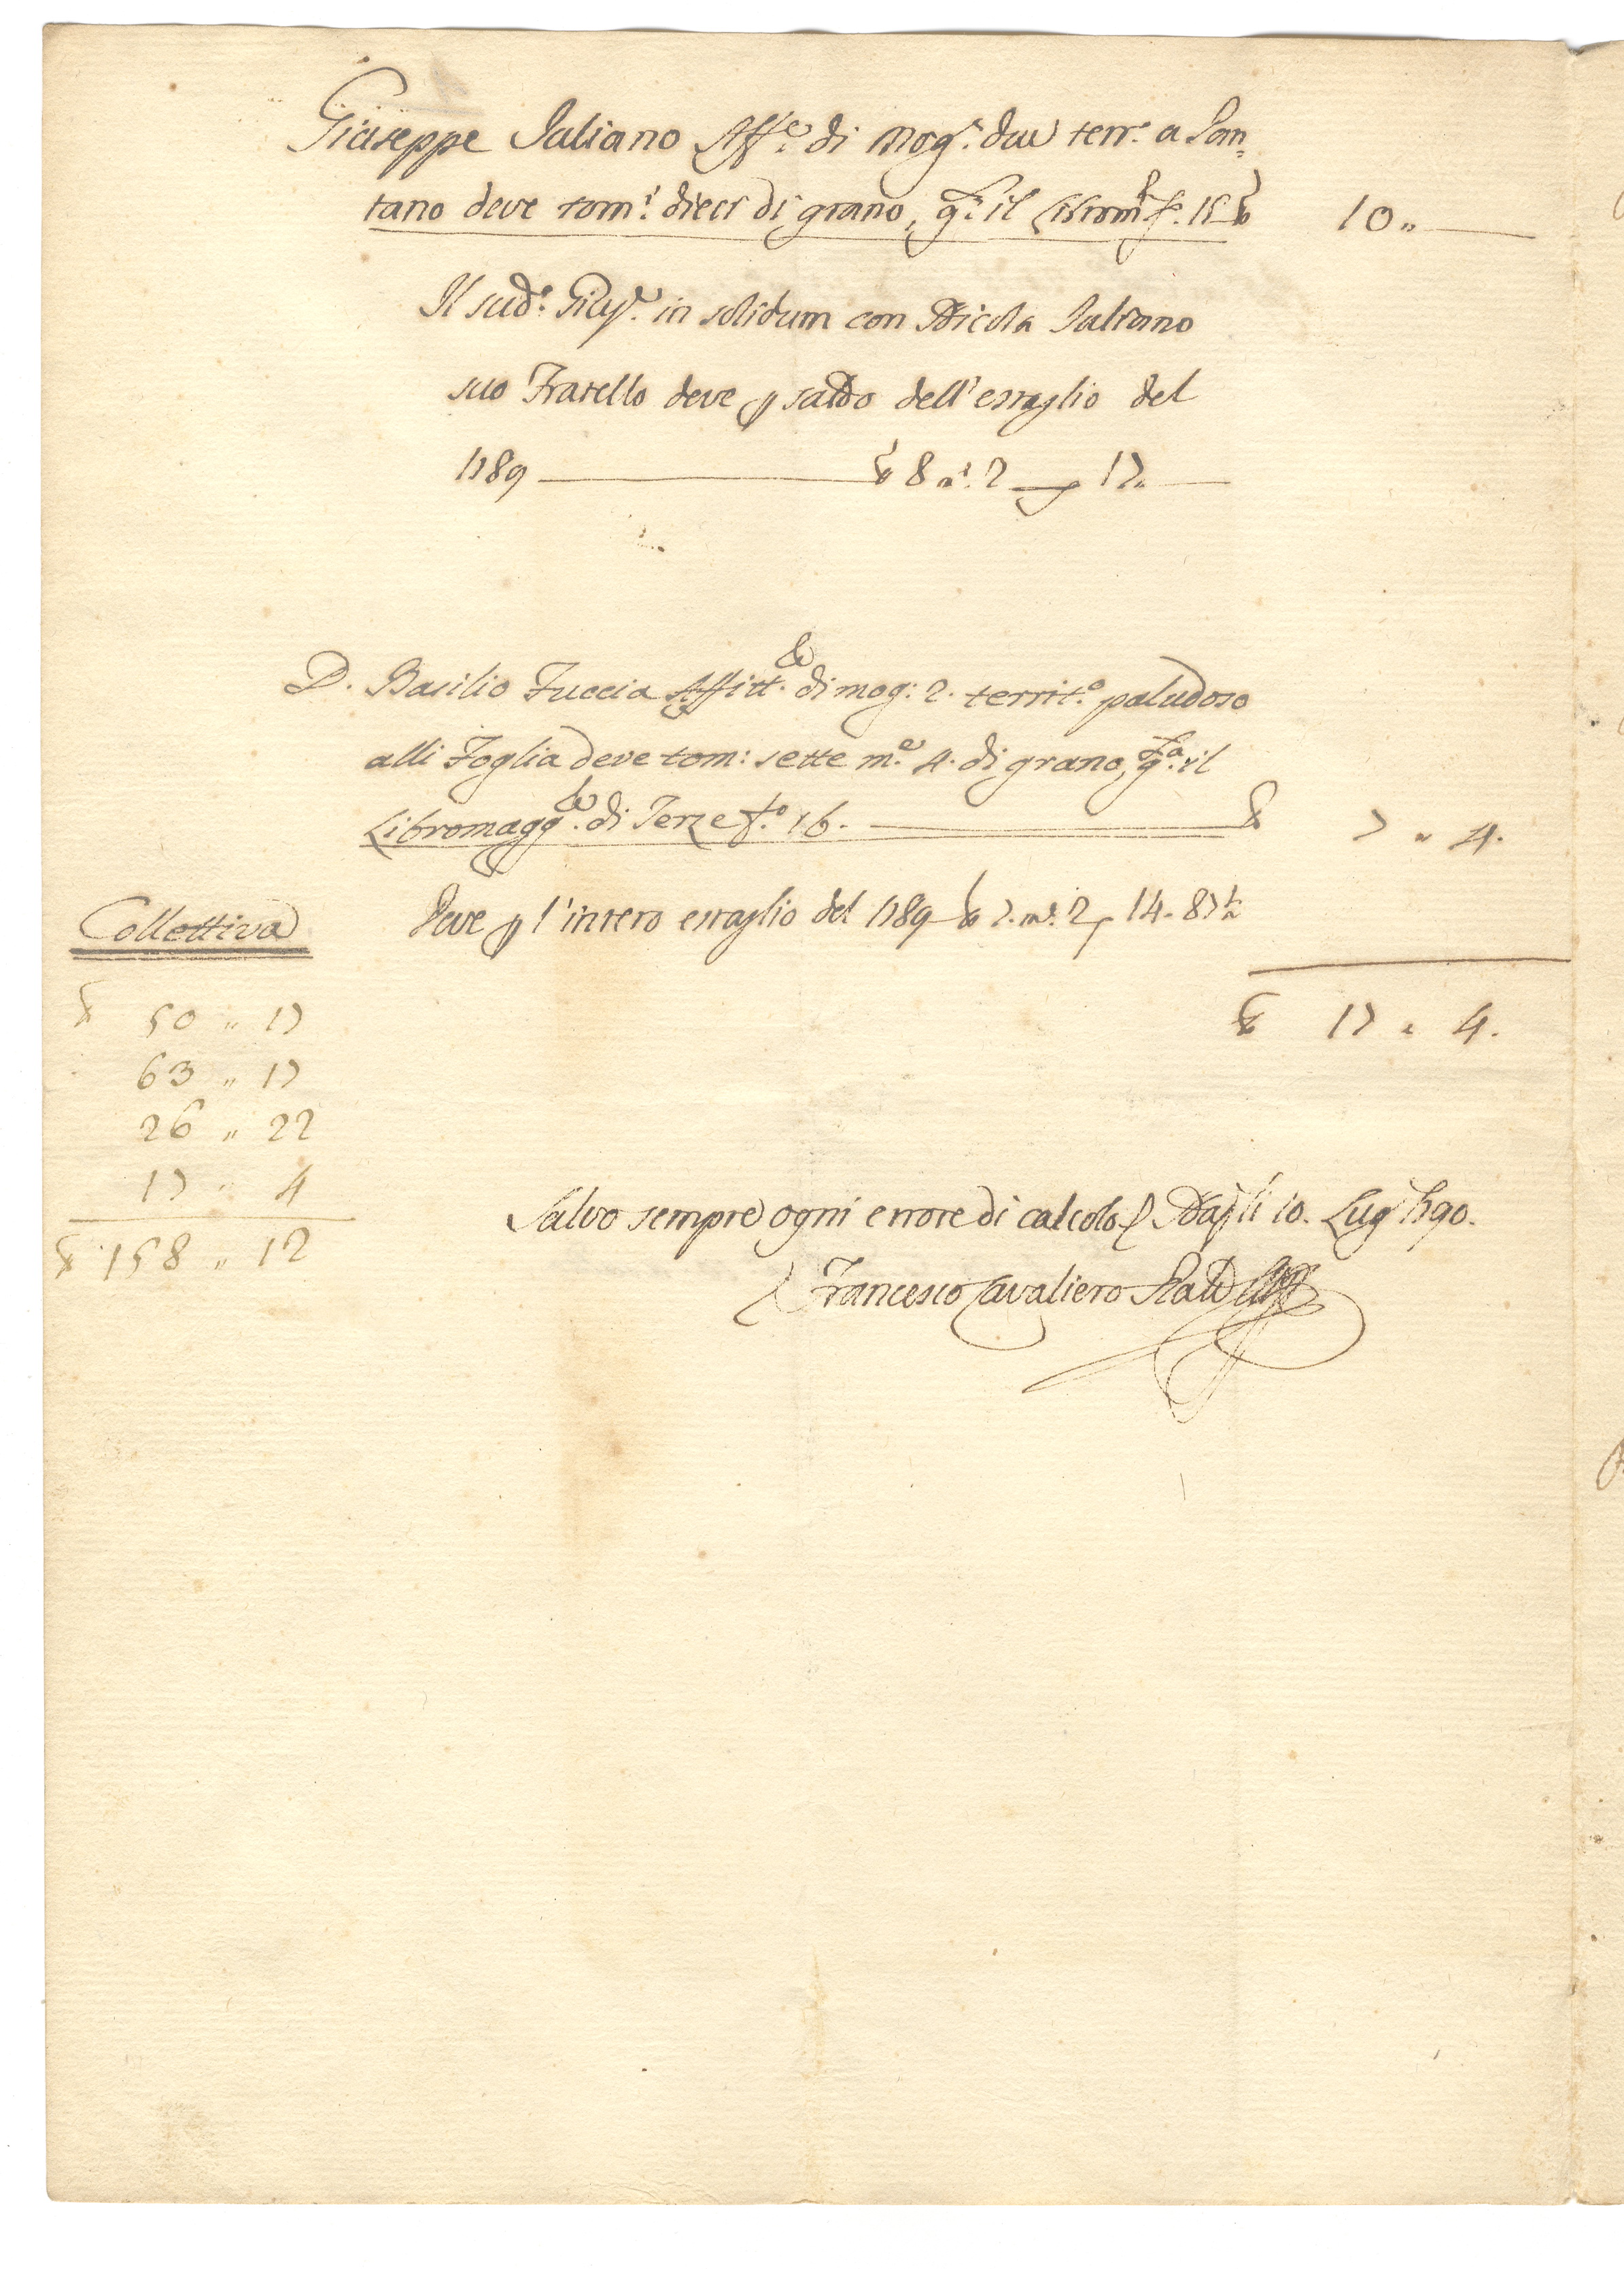 Giuseppe Taliano Aff.e di mog.a due terr.o a Pan=
tano deve tom.i dieci di grano, q.a il Librom.re f.o 15 10 "
Il sud.o Gius.e in solidum con Nicola Taliano
suo Fratello deve p saldo dell'estaglio del
1789 8 m.e 2 p 17 "
D. Basilio Fuccia Affitt.re di mog: 2. territ.o paludoso
alli Foglia deve tom: sette m.e 4. di grano, g.a il
Libromagg.re di Terze f.o 16. 7 " 4.
Deve p l'intero estaglio del 1789 7. m.e 2 p 14. 87
17 " 4.
Collettiva
50 " 17
63 " 17
26 " 22
17 " 4
158 " 12
Salvo sempre ogni errore di calcolo Nap li 10. Lug 1790.
Francesco Cavaliero